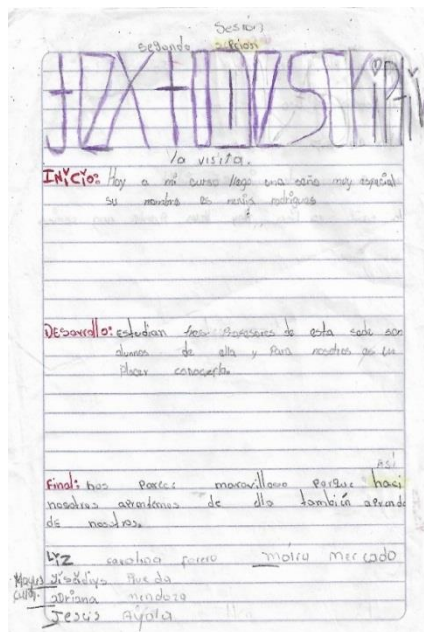 Sesión
segundo
texto
la visita.
INiCio: Hoy a mi curso llego una seño muy especial
su nombre es
DEsarrollo: estudian tres Profesores de esta sede son
alumnos de ella y Para nosotros es un
Placer conocerla.
Así
Final: nos Parece maravilloso Porque haci
nosotros aprendemos de ella también aprende
de nosotros.
Liz carolina forero maira mercado
Mayus
Rueda
adriana mendoza
Jesus Ayala